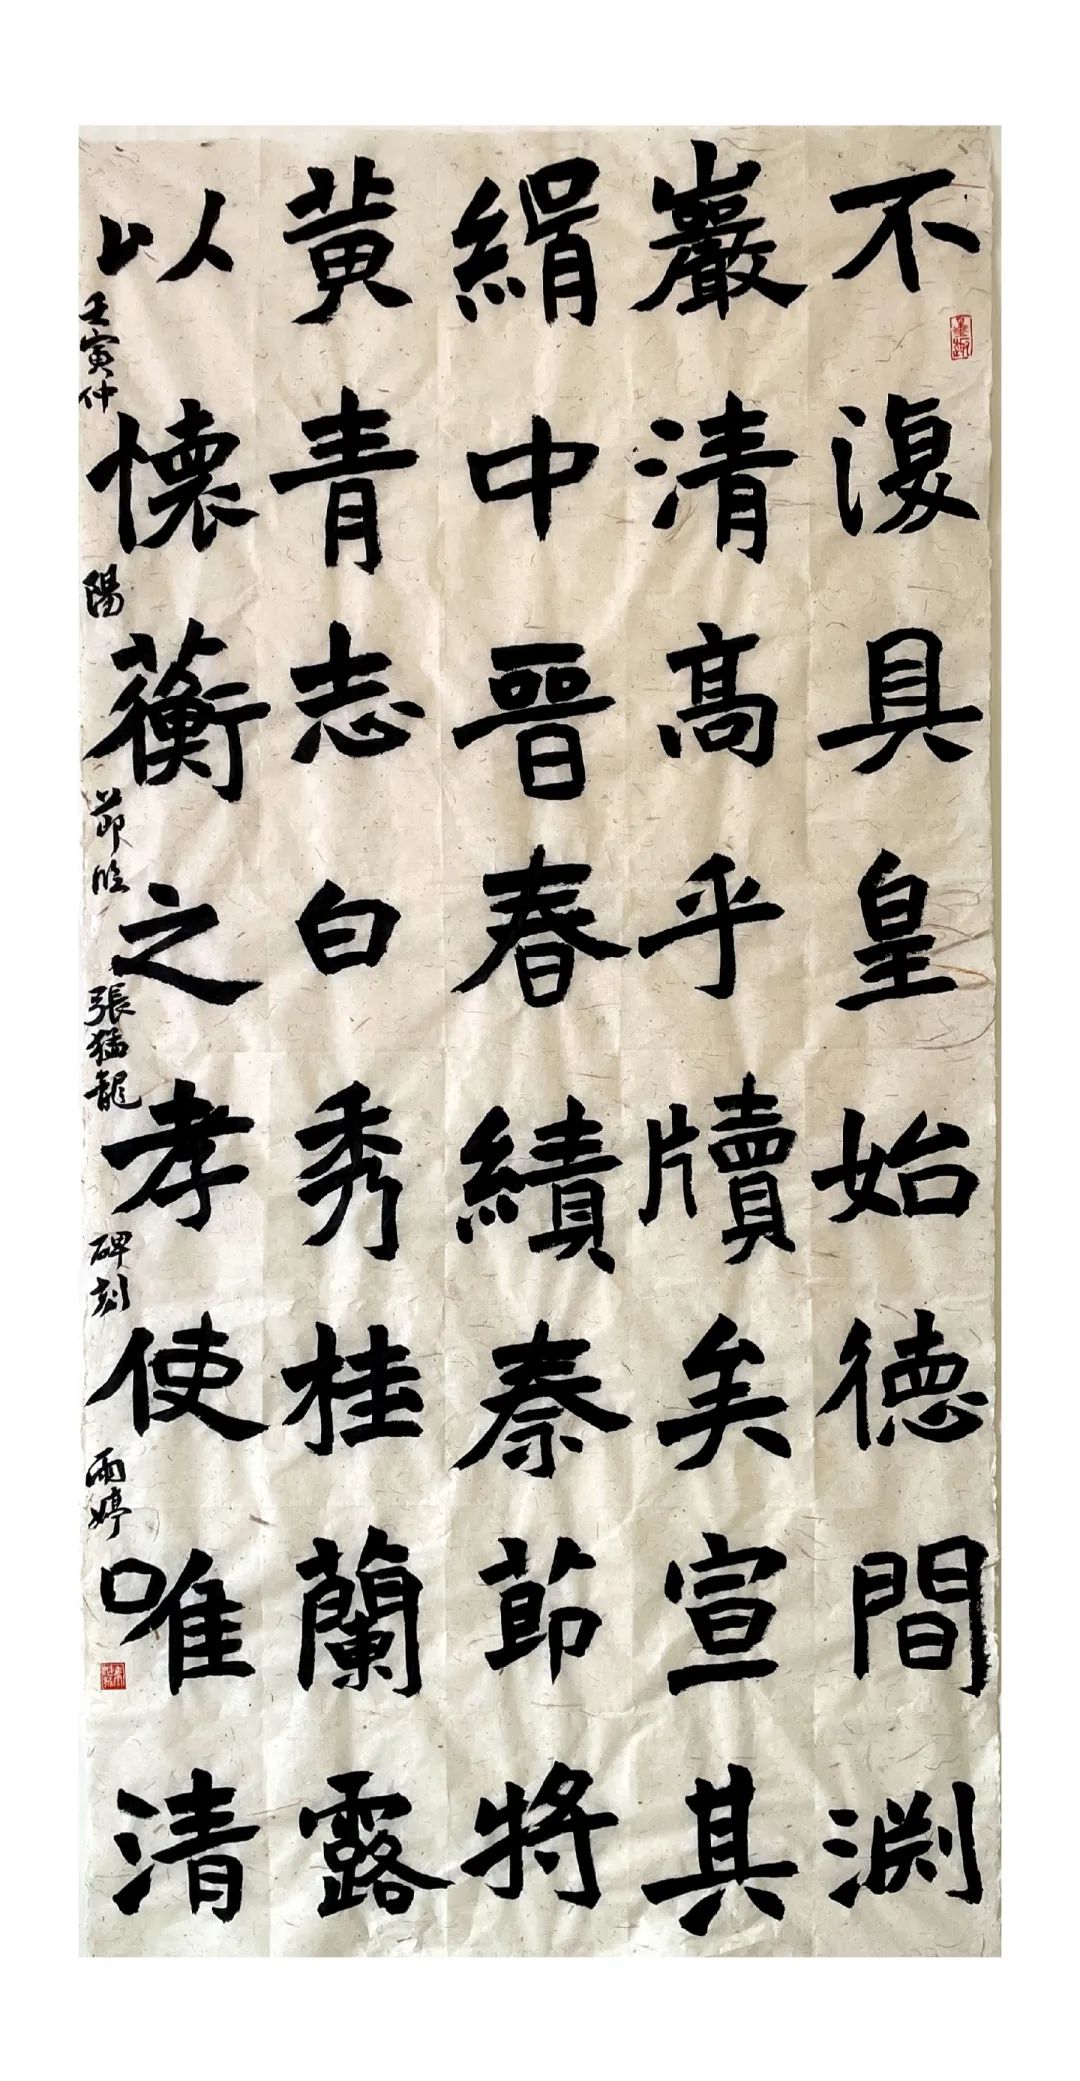 不復具皇始德間渊
巖清高乎牘矣宣其
絹中晉春績秦莭將
黃青志白秀桂蘭露
以懷蘅之孝使唯清
壬寅仲陽莭临張猛龍碑刻雨婷